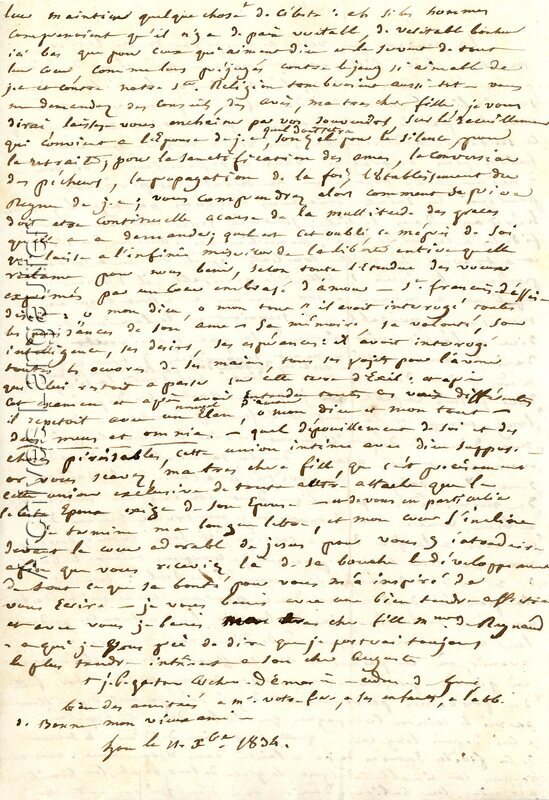 leur maintien quelque chose de céleste : ah si les hommes
comprenoient qu'il n'y a de paix veritable, de veritable bonheur
ici bas que pour ceux qui aiment dieu et le servent de tout
leur coeur, comme leurs préjugés contre le joug si aimable de
j. c. et contre notre Ste Religion tomberoient aussitot — vous
me demandez des conseils, des avis, ma tres chere fille, je vous
dirai laissez-vous enchainer par vos souvenirs sur le recueillement
qui convient a l'Epouse de j. c., quel doit etre son zèl pour le silence, pour
la retraite, pour la sanctification des ames, la conversion
des pécheurs, la propagation de la foi, l'Etablissement du
Regne de j. c.; vous comprendrez alors comment sa priere
doit etre continuelle a cause de la multitude des graces
qu'elle a a demander; quel est cet oubli, ce mépris de soi
qui laisse a l'infinie misericorde la liberté entiere qu'elle
reclame pour nous benir, selon toute l'etendue des voeux
exprimés par un coeur embrasé d'amour — St françois d'assise
disoit, o mon dieu o mon tout: il avoit interrogé toutes
les puissances de son ame — sa mémoire, sa volonté, son
intelligence, ses desirs, ses espérances: il avoit interrogé
toutes les oeuvres de ses mains, tous ses projets pour l'avenir
qui lui restoit a passer sur cette terre d'Exil: et après
cet examen et après avoir entendu toutes ces voix différentes
il repetoit avec un nouvel Elan, o mon dieu et mon tout —
deus meus et omnia. — quel dépouillement de soi et des
choses périssables, cette union intime avec dieu suppose —
or vous scavez, ma tres chere fille, que c'est precisement
cette union exclusive de toute autre attache que le
celeste Epoux exige de son Epouse — et de vous en particulier
je termine ma longue lettre, et mon coeur s'incline
devant le coeur adorable de jesus pour vous y introduire
afin que vous receviez là de sa bouche le développement
de tout ce que sa bonté pour vous m'a inspiré de
vous Ecrire — je vous benis avec une bien tendre affection
et avec vous je benis ma tres chere fille mme de Reynaud
a qui je vous prie de dire que je portrai toujours
le plus tendre intéret a son cher Auguste
† j. b. gaston
bien des amitiés a mr votre frere, a ses enfants, a l'abbé
Bonne mon vieux ami —
Lyon le 11 Xbre 1834.
Archives Lagrange